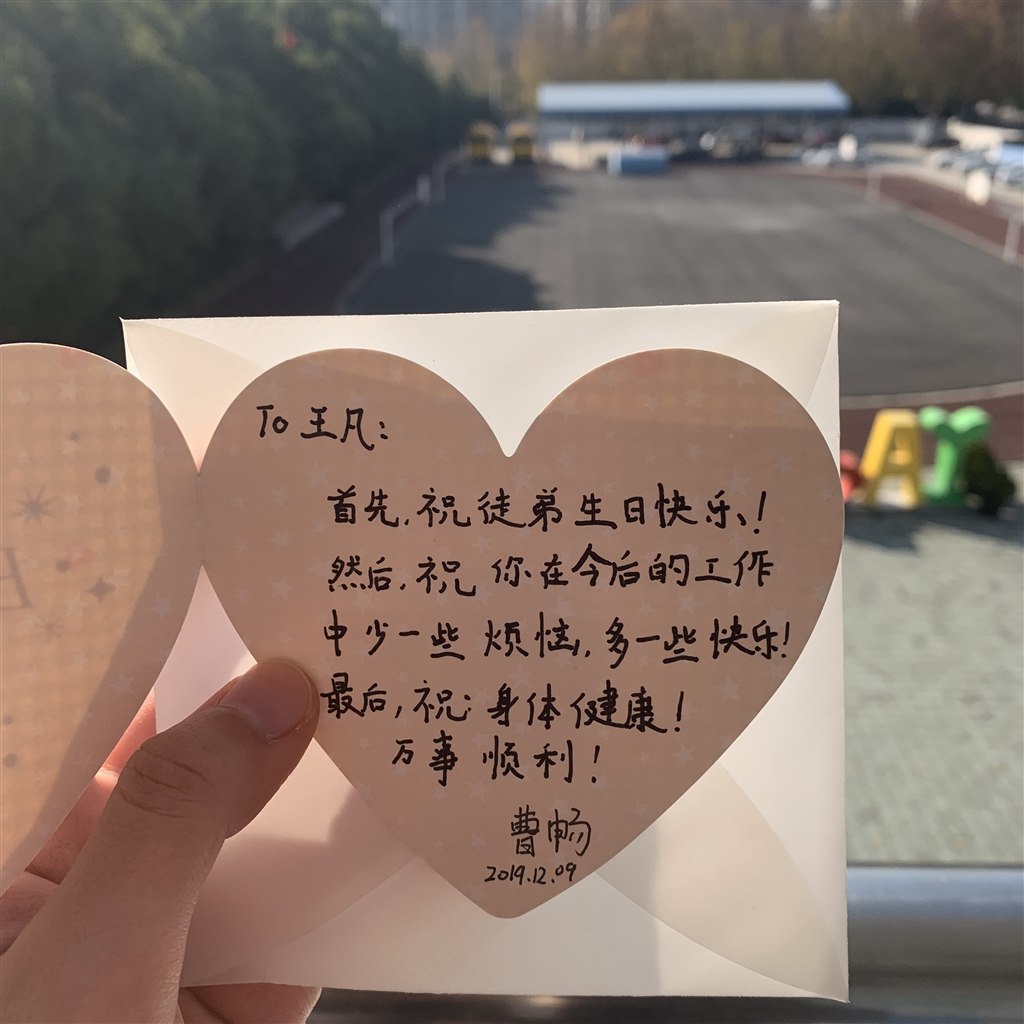 To 王凡:
首先,祝徒弟生日快乐!
然后,祝你在今后的工作
中少一些烦恼,多一些快乐!
最后,祝:身体健康!
万事顺利!
曹畅
2019.12.09
AY